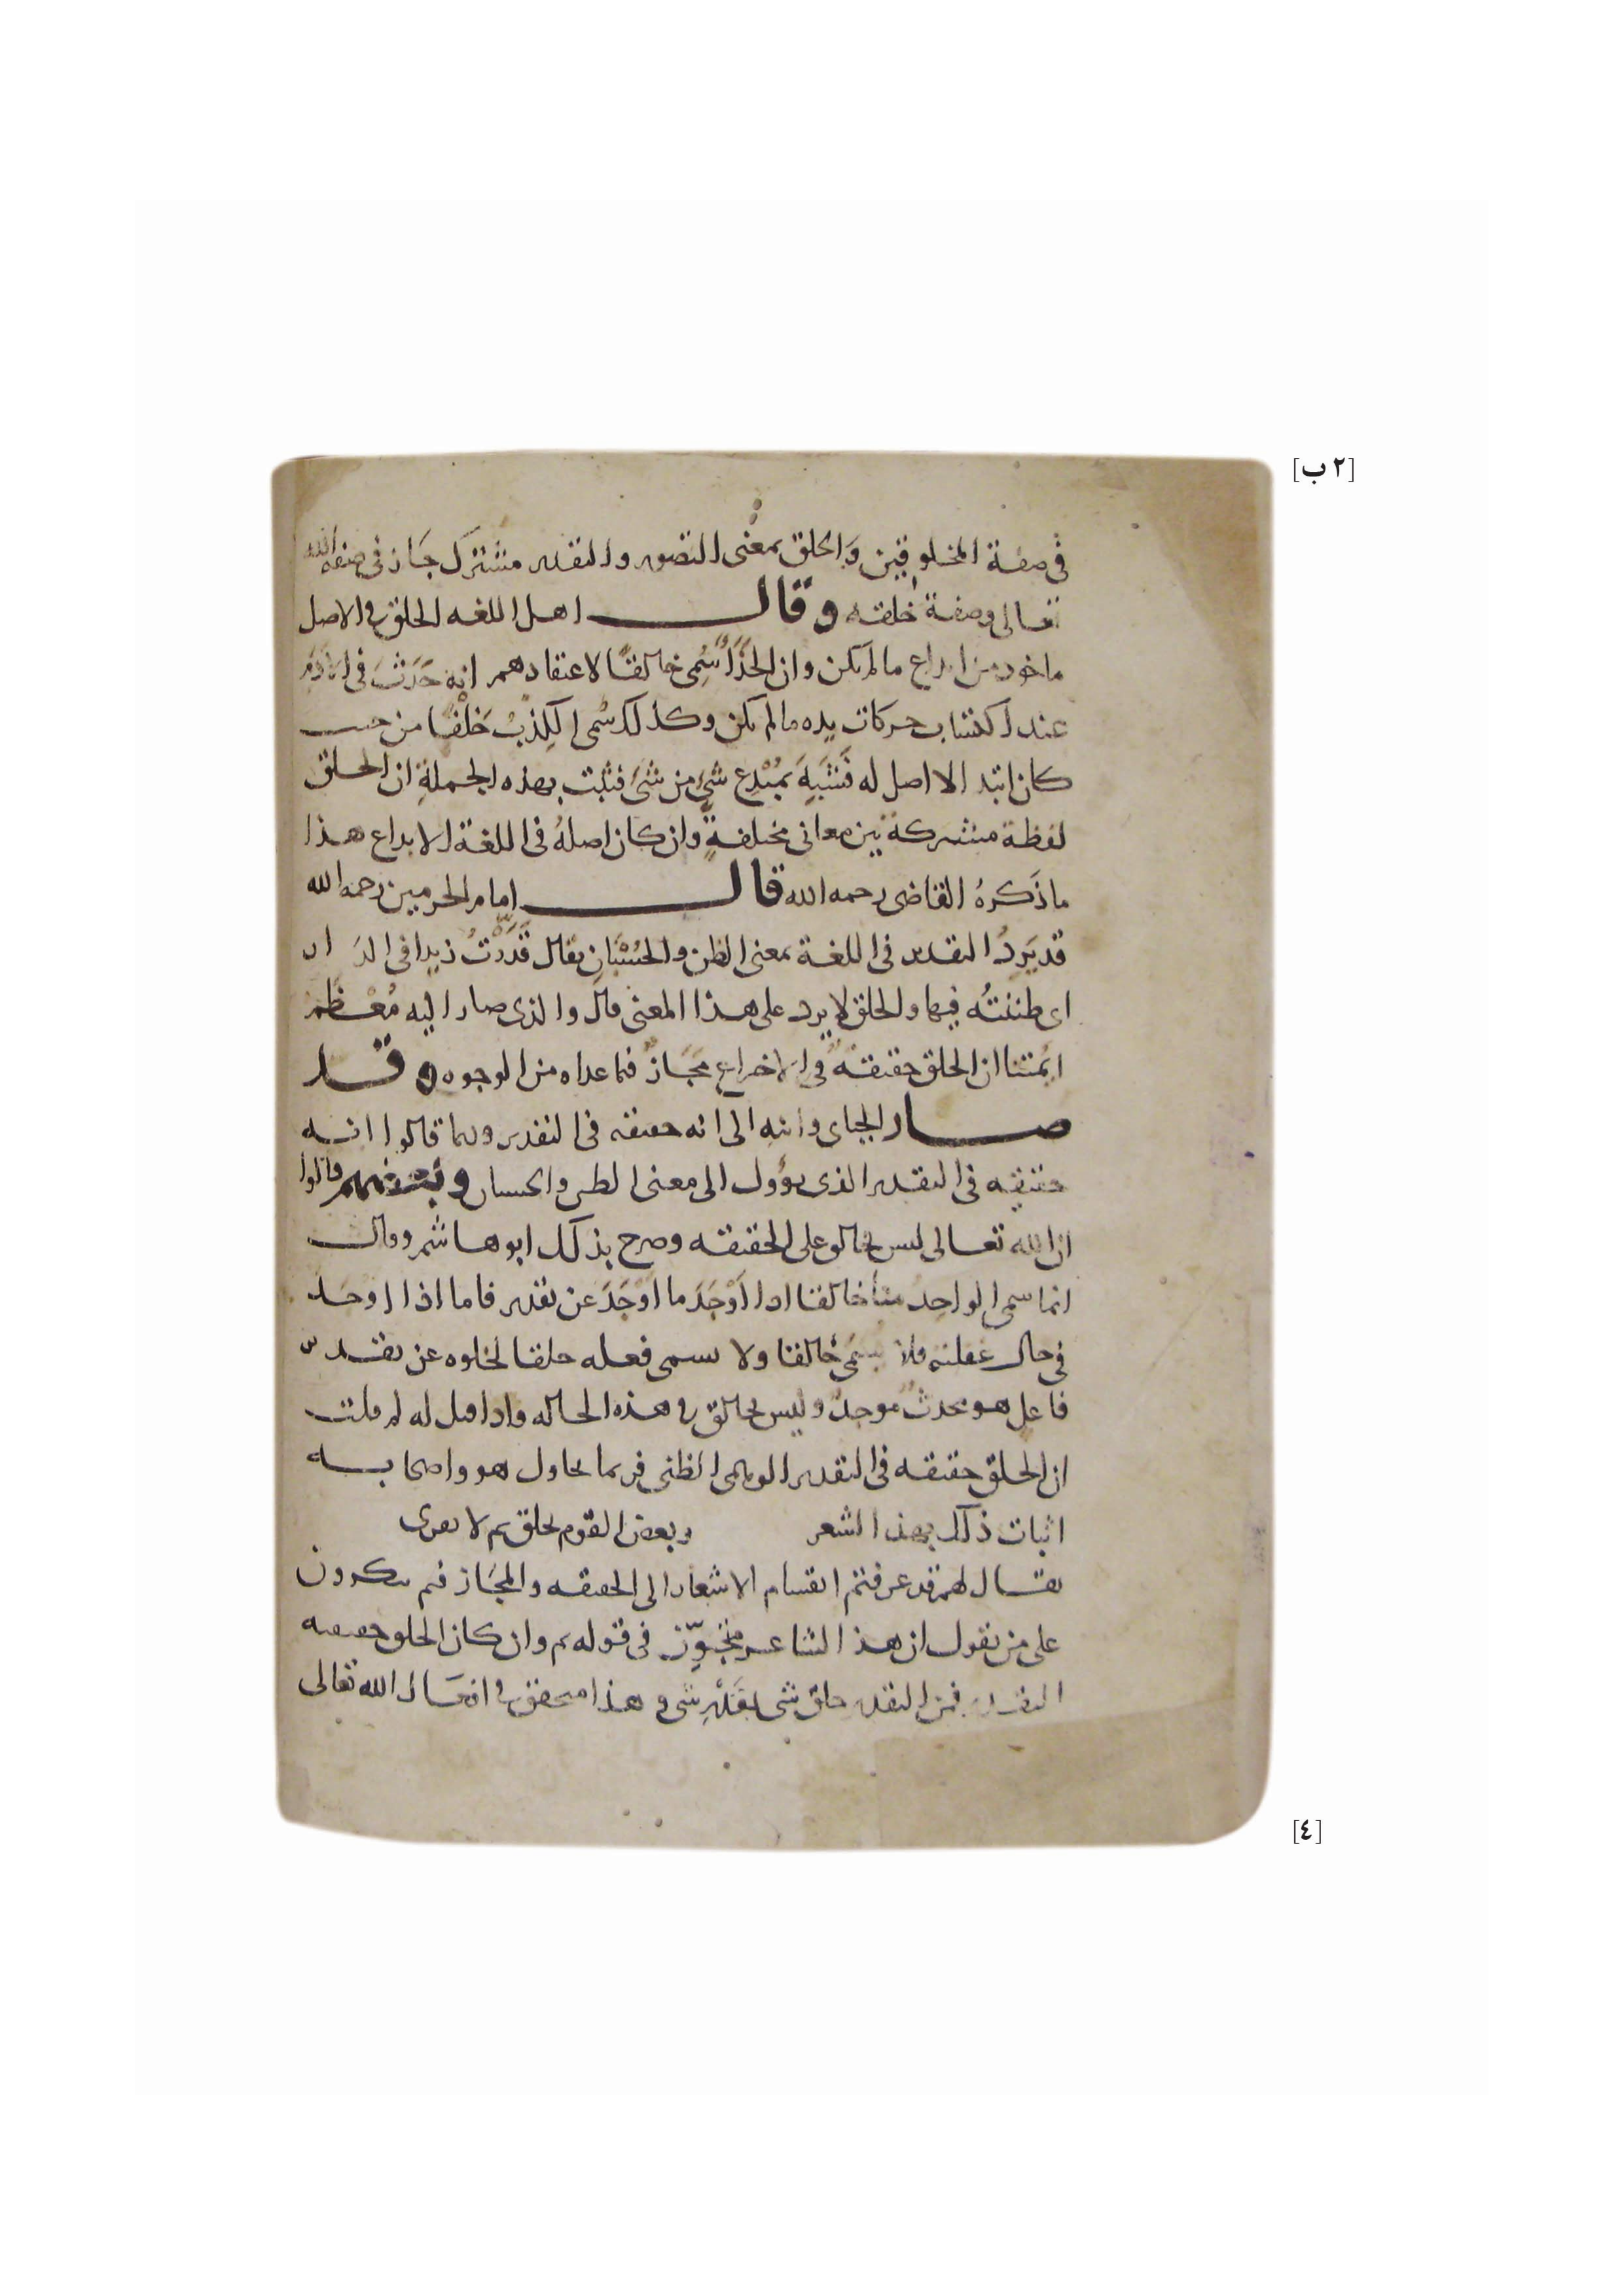 [٢ ب]
في صفة المخلوقين والخلق بمعنى التصوير والتقدير مشترك جاز في صفة الله
تعالى وصفة خلقه وقال اهل اللغه الخلق في الاصل
ماخوذ من ابداع ما لم يكن وان الحَذَّاء سُمِى خالقًا لاعتقادهم انه حَدَثَ في الأدَم
عند اكتساب حركات يده ما لم يكن وكذلك سُمى الكذبُ خَلْقًا من حيث
كان ابتدا لا اصل له فشبه بمُبْدِع شىء من شىء فثبت بهذه الجملةِ ان الخلق
لفظة مشتركة بين معانى مختلفةٍ وان كان اصلهُ في اللغة الابداع هذا
ما ذكرهُ القاضى رحمه الله قال امام الحرمين رحمه الله
قد يَرِدُ التقدير في اللغة بمعنى الظن والحُسْبَانِ يقال قَدَّرْتُ زيدا في الدَار
اى ظننتُه فيها والخلق لا يرد على هذا المعنى قال والذى صار اليه مُعْظم
ايمتنا ان الخلق حقيقةٌ في الاختراع مَجَازٌ فما عداه من الوجوه وقد
صار الجباى وابنه الى انه حقيقه في التقدير وربما قالوا انه
حقيقه في التقدير الذى يؤول الى معنى الظن والحسبان وبعضهم قالوا
ان الله تعالى ليس بخالق على الحقيقه وصرح بذلك ابو هاشم وقال
انما سمى الواحِدُ منا خالقا اذا أَوْجَدَ ما أَوْجَدَ عن تقدير فاما اذا اوجد
في حال غفلته فلا يسمى خالقا ولا يسمى فعله خلقا لخلوه عن تقدير
فاعلٍ هو محدثٌ موجدٌ وليس بخالق في هذه الحاله واذا قيل له لم قلت
ان الخلق حقيقه في التقدير الوهمى الظنى فربما يحاول هو واصحابه
اثبات ذلك بهذا الشعر وبعض القوم يخلق ثم لا يفرى
يقال لهم قد عرفتم انقسام الاشعار الى الحقيقه والمجاز فبم تنكرون
على من يقول ان هذا الشاعر متجوِّز في قوله ثم وان كان الخلق حقيقه
التقدير فمن التقدير خلق شى بقَدَرِ شى وهذا متحقق في افعال الله تعالى
[٤]